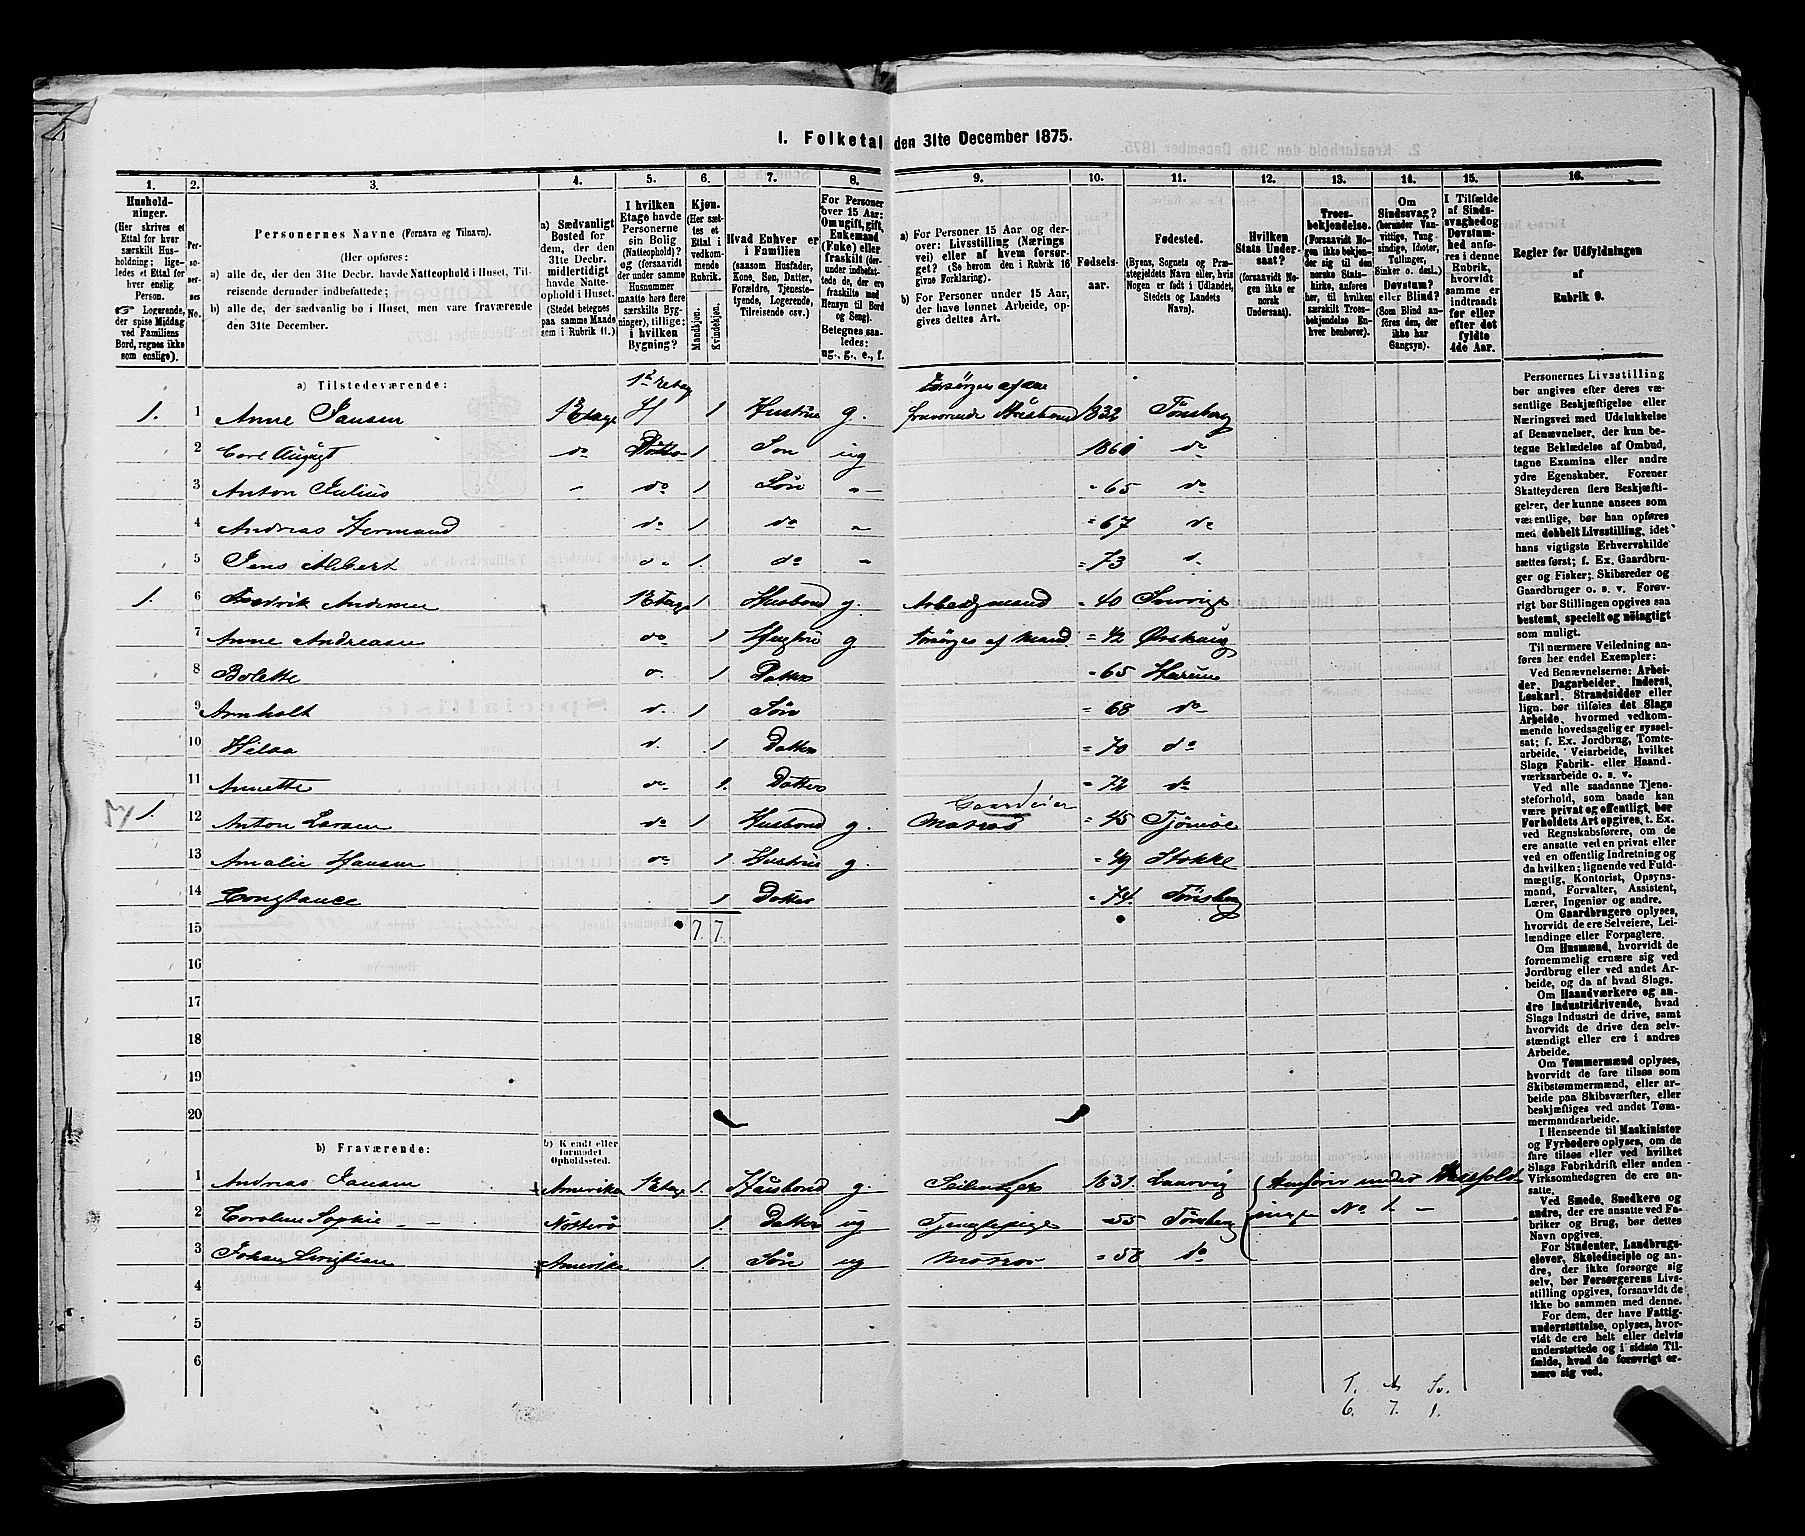 I. Folketal den 31te December 1875.
1. 2. 3. 4. 5. 6. 7. 8. 9. 10. 11. 12. 13. 14. 15. 16.
Husholdninger. (Her skrives et Ettal for hver særskilt Husholdning; ligeledes et Ettal for hver enslig Person. ☞ Logerende, der spise Middag ved Familiens Bord, regnes ikke som enslige).
Personernes No.
Personernes Navne (Fornavn og Tilnavn).
(Her opføres:
a) alle de, der den 31te Decbr. havde Natteophold i Huset, Tilreisende derunder indbefattede;
b) alle de, der sædvanlig bo i Huset, men vare fraværende den 31te December.
a) Sædvanligt Bosted for dem, der den 31te Decbr. midlertidigt havde Natteophold i Huset. (Stedet betegnes paa samme Maade som i Rubrik 11.)
I hvilken Etage havde Personerne sin Bolig (Natteophold)? og (forsaavidt der under samme Husnummer maatte høre flere særskilte Bygninger), tillige: i hvilken Bygning?
Kjøn. (Her sættes et Ettal i vedkommende Rubrik. Mandkjøn. Kvindekjøn.
Hvad Enhver er i Familien (saasom Husfader, Kone, Søn, Datter, Forældre, Tjenestetyende, Logerende, Tilreisende osv.)
For Personer over 15 Aar: Om ugift, gift, Enkemand (Enke) eller fraskilt (derunder indbefattede de, der ere fraskilte med Hensyn til Bord og Seng). Betegnes saaledes: ug., g., e., f.
a) For Personer 15 Aar og derover: Livsstilling (Næringsvei) eller af hvem forsørget? (Se herom den i Rubrik 16 givne Forklaring).
b) For Personer under 15 Aar, der have lønnet Arbeide, opgives dettes Art.
Fødselsaar.
Fødested. (Byens, Sognets og Præstegjeldets Navn eller, hvis Nogen er født i Udlandet, Stedets og Landets Navn).
Hvilken Stats Undersaat? (forsaavidt Nogen ikke er norsk Undersaat).
Troesbekjendelse. (Forsaavidt Nogen ikke bekjender sig til den norske Statskirke, anføres her, til hvilken særskilt Troesbekjendelse Enhver henhører).
Om Sindssvag? (herunder Vanvittige, Tungsindige, Idioter, Tullinger, Sinker o. desl.) Døvstum? eller Blind? (Som Blind anføres den, der ikke har Gangsyn).
I Tilfælde af Sindssvaghed og Døvstumhed anføres i denne Rubrik, hvorvidt samme er indtraadt før eller efter det fyldte 4de Aar.
Regler for Udfyldningen af Rubrik 9.
a) Tilstedeværende:
1. 1 Anne Jansen 1 Etage H 1 Hustru g. Forsørges af den fraværende Husbond 1832 Tønsberg
2 Carl August do 1 Søn ug 1860 do
3 Anton Julius do 1 Søn " 65 do
4 Andreas Hermand do 1 do " 67 do
5 Jens Albert do 1. do " 73 d.
1. 6 Fredrik Andersen 1 Etage 1 Husbond g. Arbeidsmand " 40 Sverrige
7 Anne Andreasen do 1 Hustru g forsørges af Mand " 42 Ørskoug
8 Bolette 1 Datter " 65 Harum
9 Arnholt d. 1 Søn " 68 do
10 d. 1 Datter " 70 do
11 Annette do 1. Datter " 72 do
1. 12 Anton Larsen do 1 Husbond g. Gaardeier Matros " 45 Tjømøe
13 Amalie Hansen do 1 Hustru g. " 49 Stokke
14 Constance 1 Datter " 74. Tønsberg
15 7. 7.
16
17
18
19
20
b) Fraværende:
b) Kjendt eller formodet Opholdssted.
1 Andreas Jansen Amerika 1 Etage 1. Husbond g. 1831. Laurvig Anføres under
2 Caroline Sophie Nøtterø 1. Datter ug Tjenestepige " 55 Tønsberg No 1.
3 Johan Christian Amerika 1. Søn ug Matros " 58 do
4
5
6
T. A Sv.
6. 7. 1.
Personernes Livsstilling bør angives efter deres væsentlige Beskjæftigelse eller Næringsvei med Udelukkelse af Benævnelser, der kun betegne Beklædelse af Ombud, tagne Examina eller andre ydre Egenskaber. Forener Skatteyderen flere Beskjæftigelser, der kunne ansees som væsentlige, bør han opføres med dobbelt Livsstilling, idet hans vigtigste Erhvervskilde sættes først; f. Ex. Gaardbruger og Fisker; Skibsreder og Gaardbruger o. s. v. Forøvrigt bør Stillingen opgives saa bestemt, specielt og nøiagtigt som muligt.
Til nærmere Veiledning anføres her endel Exempler:
Ved Benævnelserne: Arbeider, Dagarbeider, Inderst, Løskarl, Strandsidder eller lign. bør tilføies det Slags Arbeide, hvormed vedkommende hovedsagelig er sysselsat; f. Ex. Jordbrug, Tomtearbeide, Veiarbeide, hvilket Slags Fabrik- eller Haandværksarbeide o. s. v.
Ved alle saadanne Tjenesteforhold, som baade kan være privat og offentligt, bør Forholdets Art opgives, t. Ex. ved Regnskabsførere, om de ere ansatte ved en privat eller ved en offentlig Indretning og da hvilken; lignende ved Fuldmægtig, Kontorist, Opsynsmand, Forvalter, Assistent, Lærer, Ingeniør og andre.
Om Gaardbrugere oplyses, hvorvidt de ere Selveiere, Leilændinge eller Forpagtere.
Om Husmænd, hvorvidt de fornemmelig ernære sig ved Jordbrug eller ved andet Arbeide, og da af hvad Slags.
Om Haandværkere og andre Industridrivende, hvad Slags Industri de drive, samt hvorvidt de drive den selvstændigt eller ere i andres Arbeide.
Om Tømmermænd oplyses, hvorvidt de fare tilsøs som Skibstømmermænd, eller arbeide paa Skibsværfter, eller beskjæftiges ved andet Tømmermandsarbeide.
I Henseende til Maskinister og Fyrbødere oplyses, om de fare tilsøs eller ved hvilket Slags Fabrikdrift eller anden Virksomhedsgren de ere ansatte.
Ved Smede, Snedkere og andre, der ere ansatte ved Fabriker og Brug, bør dettes Navn opgives.
For Studenter, Landbrugselever, Skoledisciple og andre, der ikke forsørge sig selv, bør Forsørgerens Livsstilling opgives, forsaavidt de ikke bo sammen med denne.
For dem, der have Fattigunderstøttelse, oplyses, hvorvidt de ere helt eller delvis understøttede og i sidste Tilfælde, hvad de forøvrigt ernære sig ved.